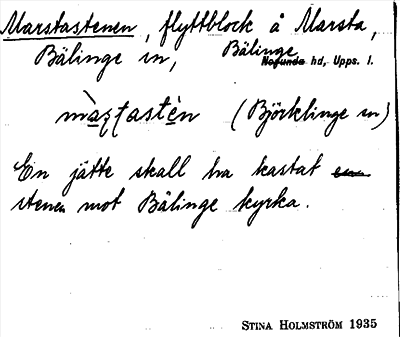 Marstastenen, flyttblock å Marsta,
Bälinge sn, Bälinge
Norunda hd, Upps. l.
(Björklinge sn)
En jätte skall ha kastat
stenen mot Bälinge kyrka.
STINA HOLMSTRÖM 1935